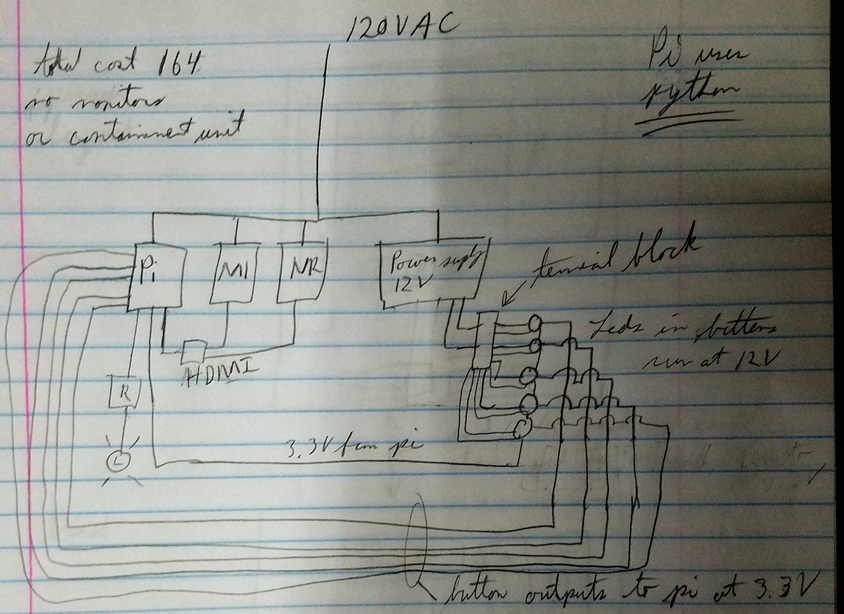 120VAC
total cost 164
no monitors
or containment unit
Pi uses
python
Pi
M1
MR
Power supply
12V
terminal block
HDMI
Leds in buttons
run at 12V
R
L
3.3V from pi
button outputs to pi at 3.3V